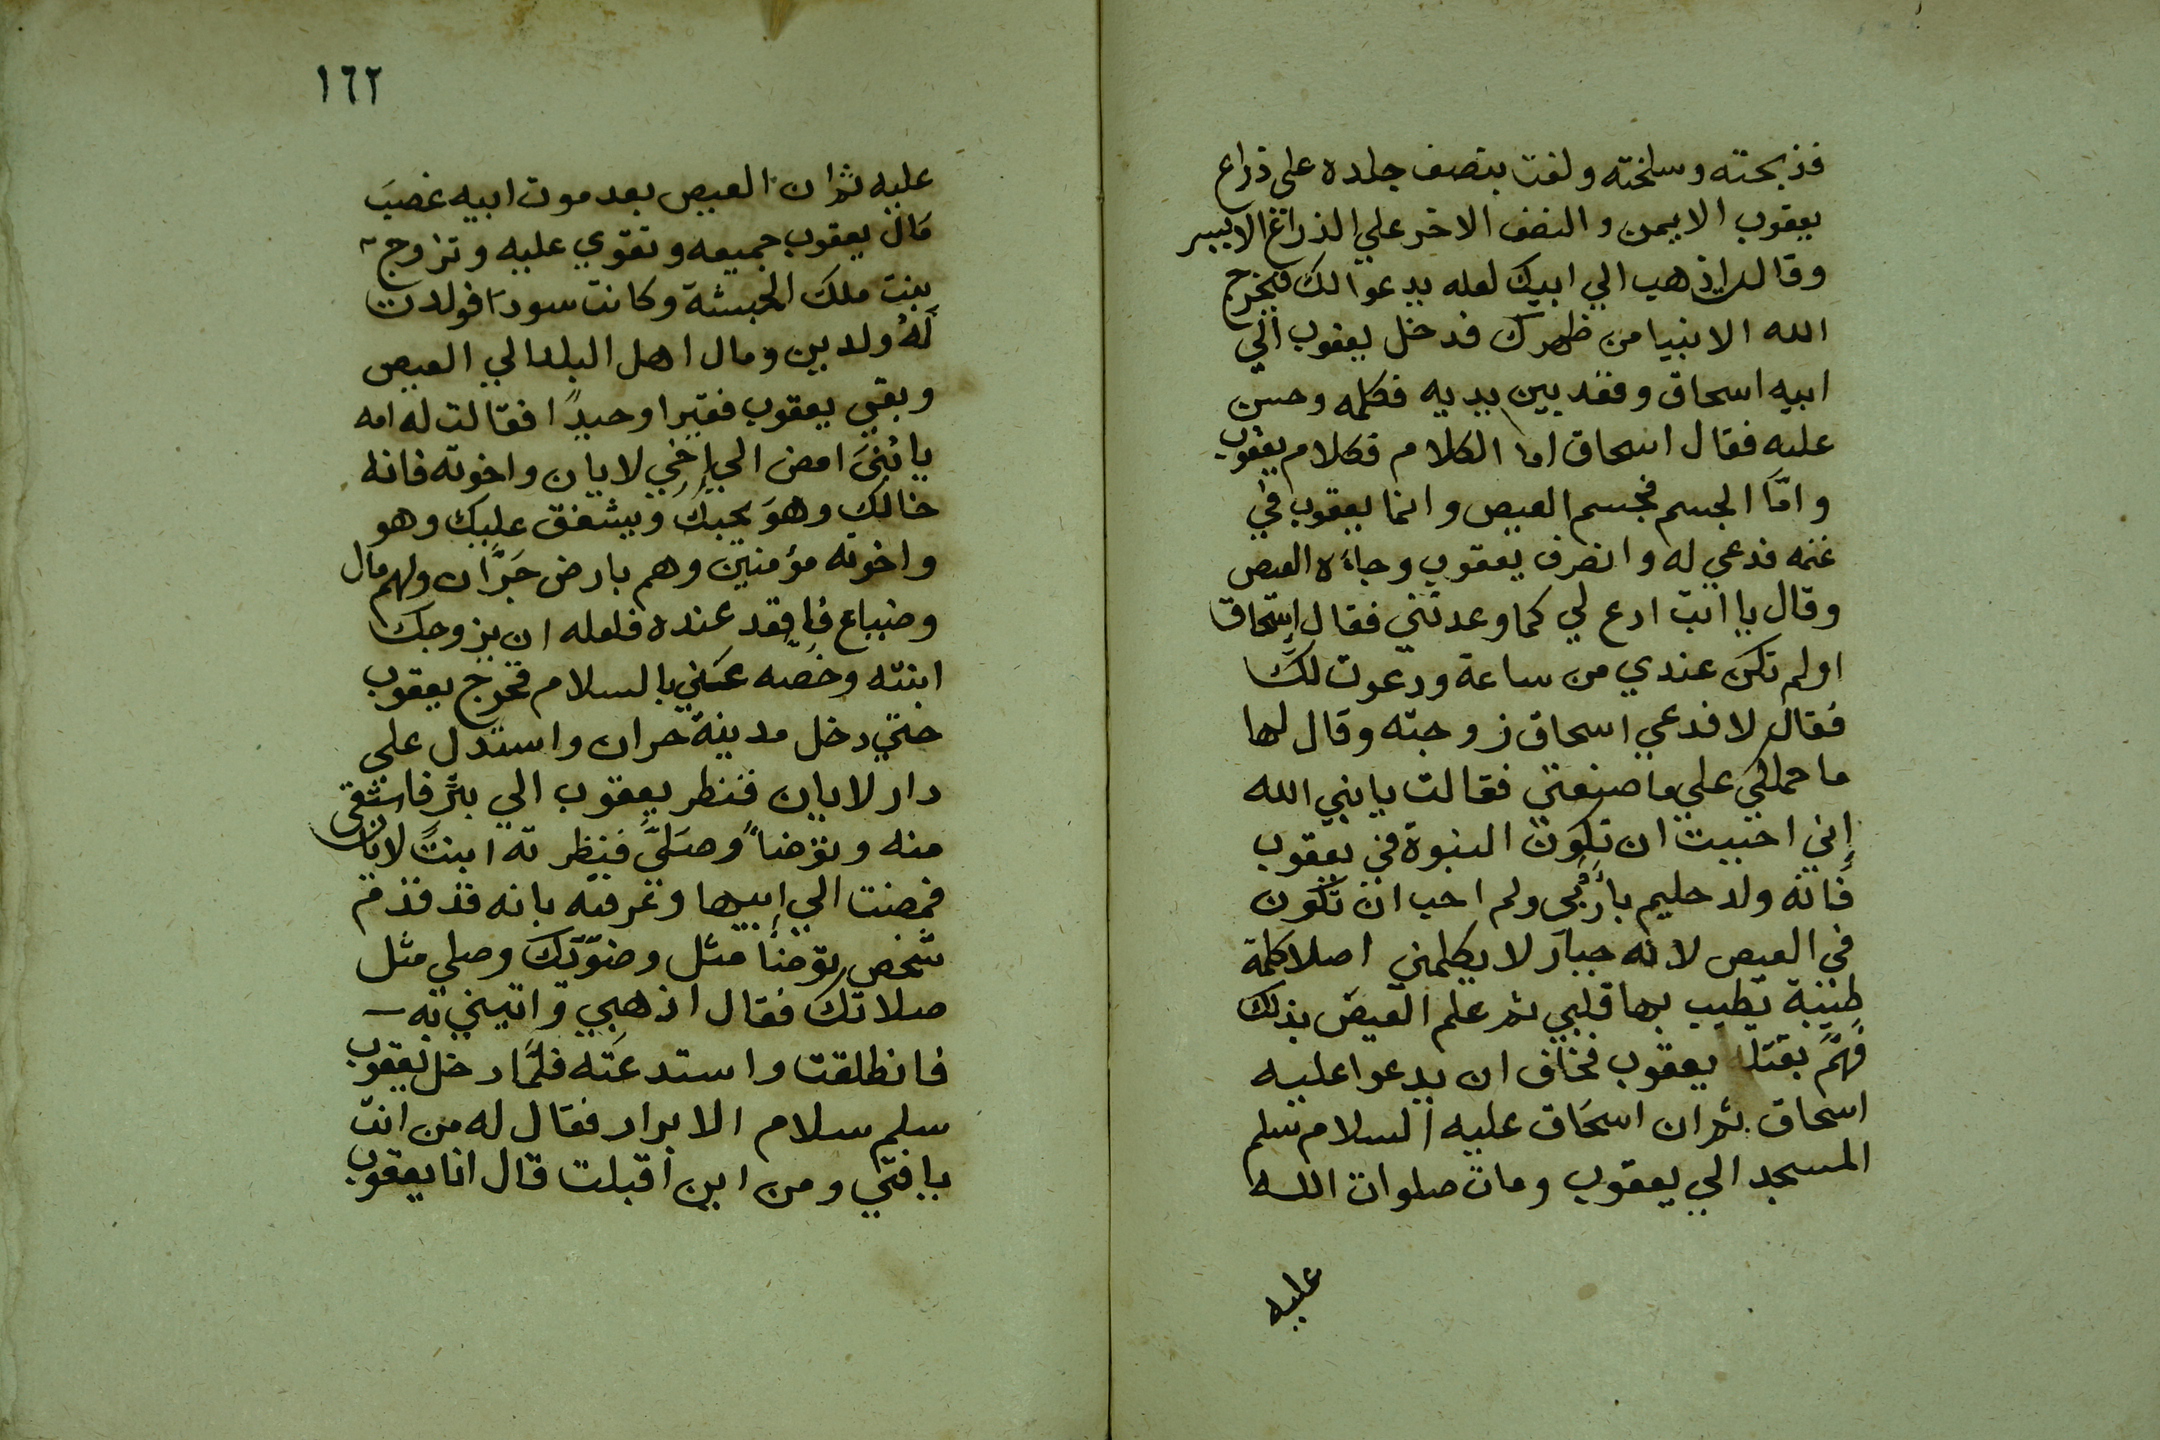 فذبحته وسلخته ولفت بنصف جلده على ذراع
يعقوب الايمن والنصف الاخر علي الذراع الايسر
وقالت اذهب الي ابيك لعله يدعوا لك فيخرج
الله الانبيا من ظهرك فدخل يعقوب الي
ابيه اسحاق وقعد بين يديه فكلمه وحسن
عليه فقال اسحاق اما الكلام فكلام يعقوب
وامّا الجسم فجسم العيص وانما يعقوب في
غنمه فدعي له وانصرف يعقوب وجاءه العيص
وقال يا ابت ادع لي كما وعدتني فقال إسحاق
اولم تكن عندي من ساعة ودعوت لك
فقال لا فدعي اسحاق زوجته وقال لها
ما حملكي علي ما صنعتي فقالت يا نبي الله
إني احببت ان تكون النبوة في يعقوب
فانه ولد حليم بارٌ بي ولم احب ان تكون
في العيص لانه جبار لا يكلمني اصلا كلمة
طيبة يطيب بها قلبي ثم علم العيص بذلك
فهمّ بقتله يعقوب فخاف ان يدعوا عليه
اسحاق ثم ان اسحاق عليه السلام سلم
المسجد الي يعقوب ومات صلوات الله
عليه
١٦٢
عليه ثم ان العيص بعد موت ابيه غصبَ
مال يعقوب جميعه وتقوي عليه وتزوج
ببنت ملك الحبشة وكانت سودا فولدت
لهُ ولدين ومال اهل البلد الي العيص
وبقي يعقوب فقيرا وحيدًا فقالت له امه
يا بُنيَ امض الي إخي لابان واخوته فانه
خالك وهوَ يحبك ويشفق عليك وهو
واخوته مؤمنين وهم بارض حَرَّان ولهم مال
وضياع فاقعد عنده فلعله ان يزوجك
ابنته وخصه عني بالسلام فخرج يعقوب
حتي دخل مدينة حران واستدل علي
دار لابان فنظر يعقوب الي بئر فاستقي
منه وتوضأ وصلىّ فنظرته ابنت لابان
فمضت الي ابيها وعرفته بانه قد قدم
شخص توضأ مثل وضوّتك وصلي مثل
صلاتك فقال اذهبي واتيني به
فانطلقت واستدعته فلمّا دخل يعقوب
سلم سلام الابرار فقال له من انت
يا فتي ومن اين اقبلت قال انا يعقوب